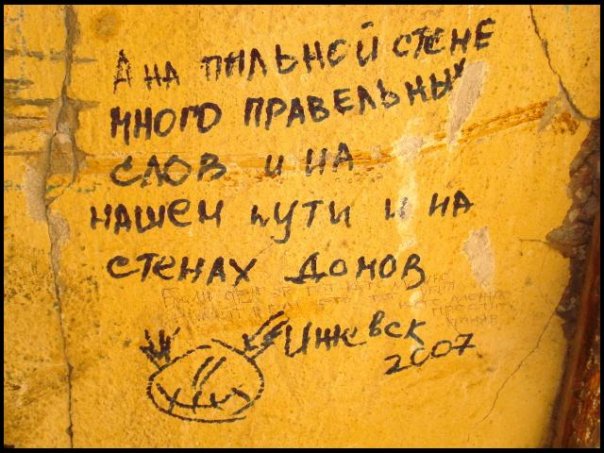 А НА ПЫЛЬНОЙ СТЕНЕ
МНОГО ПРАВЕЛЬНЫХ
СЛОВ И НА
НАШЕМ ПУТИ И НА
СТЕНАХ ДОМОВ
ИЖЕВСК
2007